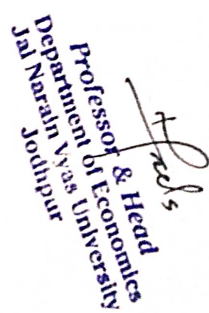 Professor & Head
Department of Economics
Jai Narain Vyas University
Jodhpur